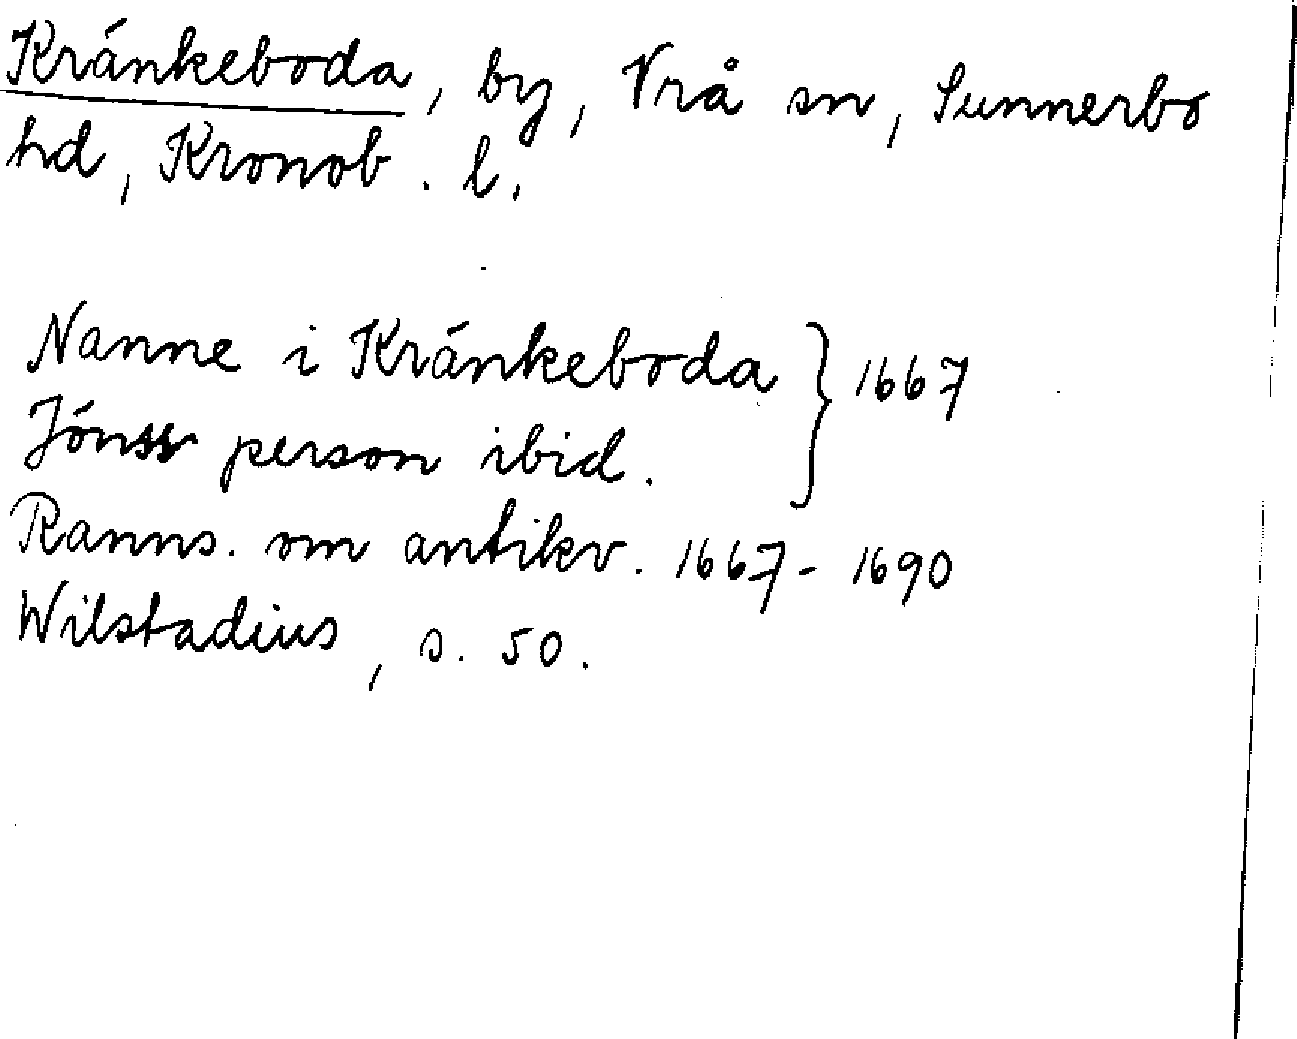 Kránkeboda, by, Vrå sn, Sunnerbo
hd, Kronob. l.
Nanne i Kránkeboda } 1667
Jónss person ibid.
Ranns. om antikv. 1667-1690
Wilstadius, s. 50.